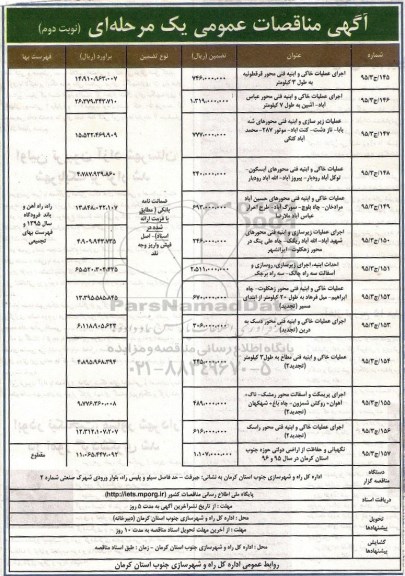 آگهی مناقصات عمومی یک مرحله‌ای (نوبت دوم)
شماره عنوان تضمین (ریال) نوع تضمین برآورد (ریال) فهرست بها
۹۵/۳/ج/۱۴۵ اجرای عملیات خاکی و ابنیه فنی محور قرقطوئیه به طول ۳ کیلومتر ۷۴۶،۰۰۰،۰۰۰ ۱۴،۹۱۰،۹۶۲،۰۰۷
۹۵/۳/ج/۱۴۶ اجرای عملیات خاکی و ابنیه فنی محور عباس آباد- آشین به طول ۷ کیلومتر ۱،۳۱۹،۰۰۰،۰۰۰ ۲۶،۳۷۹،۳۴۲،۷۱۰
۹۵/۳/ج/۱۴۷ عملیات زیر سازی و ابنیه فنی محورهای شه بابا- ناز دشت- کنت آباد- موتور ۲۸۷- محمد آباد کتکی ۷۷۷،۰۰۰،۰۰۰ ۱۵،۵۳۲،۴۶۹،۹۰۹
۹۵/۳/ج/۱۴۸ عملیات خاکی و ابنیه فنی محورهای ایسکون- توکل آباد رودبار- پیروز آباد- الله آباد رودبار ۲۴۰،۰۰۰،۰۰۰ ۴،۷۸۷،۹۳۹،۸۶۰
۹۵/۳/ج/۱۴۹ عملیات خاکی و ابنیه فنی محورهای حسین آباد مرادخان- چاه بلوچ- مبورک آباد- طرح اعراق- عباس آباد ملارضا ۶۹۲،۰۰۰،۰۰۰ ۱۳،۸۴۸،۰۳۲،۱۰۷
۹۵/۳/ج/۱۵۰ اجرای عملیات زیرسازی و ابنیه فنی محورهای شهید آباد- الله آباد ریگک- چاه علی پنگ در محور زهکلوت- ایرانشهر ۲۴۶،۰۰۰،۰۰۰ ۴،۹۰۹،۹۴۳،۷۳۵
ضمانت نامه بانکی (مطابق با فرمت ارائه شده در اسناد)- اصل فیش واریز وجه نقد
راه، راه آهن و باند فرودگاه سال ۱۳۹۵ و فهرست بهای تجمیعی
۹۵/۳/ج/۱۵۱ احداث ابنیه، اجرای زیرسازی، روسازی و آسفالت سه راه چالک- سه راه برجک ۲،۵۱۱،۰۰۰،۰۰۰
۹۵/۳/ج/۱۵۲ عملیات خاکی و ابنیه فنی محور زهکلوت- چاه ابراهیم- میل فرهاد به طول ۲۰ کیلومتر از ابتدای مسیر (تجدید) ۶۷۰،۰۰۰،۰۰۰ ۱۳،۳۹۵،۵۸۵،۸۴۵
۹۵/۳/ج/۱۵۳ اجرای عملیات خاکی و ابنیه فنی محور مسک به درین (تجدید۲) ۳۰۶،۰۰۰،۰۰۰ ۶،۱۱۸،۹۰۵،۶۲۲
۹۵/۳/ج/۱۵۴ عملیات خاکی و ابنیه فنی مطاح به طول ۲ کیلومتر (تجدید۲) ۲۴۵،۰۰۰،۰۰۰ ۴،۸۹۵،۹۶۸،۳۹۴
۹۵/۳/ج/۱۵۵ اجرای بریمکت و آسفالت محور رمشک- ناک- آهوان- روکش شمزون- چاه باغ- شهکهان (تجدید۲) ۴۸۹،۰۰۰،۰۰۰ ۹،۷۷۶،۳۶۰،۰۰۸
۹۵/۳/ج/۱۵۶ اجرای عملیات خاکی و ابنیه فنی محور راسک (تجدید۲) ۶۱۶،۰۰۰،۰۰۰ ۱۲،۳۱۲،۱۰۷،۲۰۷
۹۵/۳/ج/۱۵۷ نگهبانی و حفاظت از اراضی دولتی حوزه جنوب استان کرمان در سال ۹۵ و ۹۶ ۱،۱۰۷،۰۰۰،۰۰۰ ۱۱،۰۶۵،۴۴۷،۰۹۲ مقطوع
دستگاه مناقصه گزار اداره کل راه و شهرسازی جنوب استان کرمان به نشانی: جیرفت – حد فاصل سیلو و پلیس راه، بلوار ورودی شهرک صنعتی شماره ۲
دریافت اسناد پایگاه ملی اطلاع رسانی مناقصات کشور (http://iets.mporg.ir)
مهلت: از تاریخ نشر آخرین آگهی به مدت ۵ روز
تحویل پیشنهادها محل: اداره کل راه و شهرسازی جنوب استان کرمان (دبیرخانه)
مهلت: از آخرین مهلت تحویل اسناد مناقصه به مدت ۱۰ روز
گشایش پیشنهادها محل: اداره کل راه و شهرسازی جنوب استان کرمان – زمان: طبق اسناد مناقصه
روابط عمومی اداره کل راه و شهرسازی جنوب استان کرمان
ParsNamadData
پایگاه اطلاع رسانی مناقصه و مزایده
۰۲۱-۸۸۳۴۹۶۷۰-۵